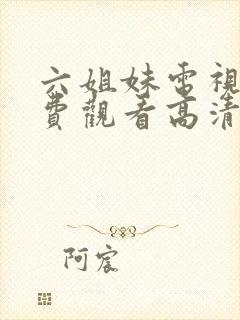 六姐妹電視
費觀看高清
阿宸